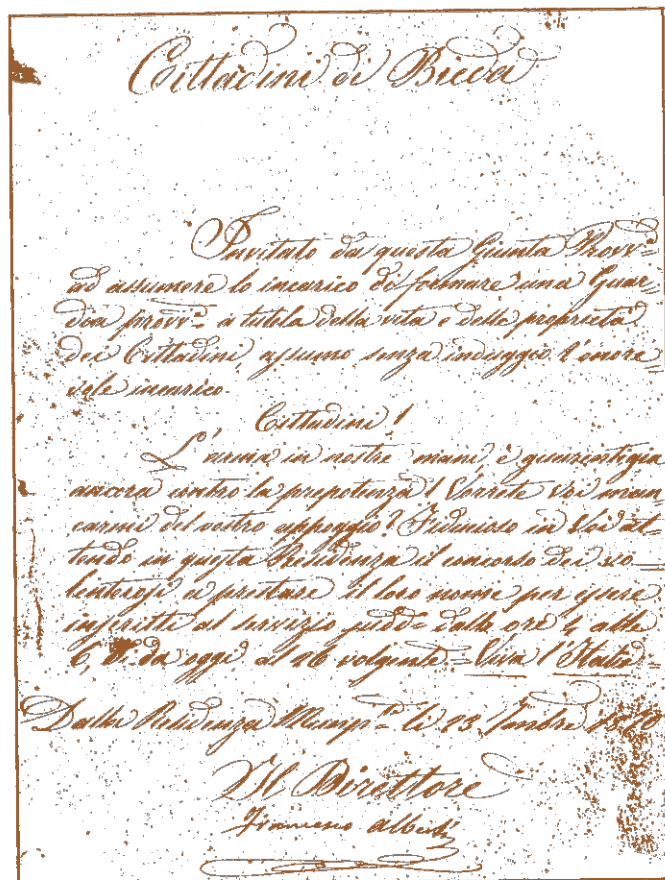 Cittadini di Bieda
Invitato da questa Giunta Provv.ª
ad assumere lo incarico di formare una Guar=
dia provv.ª a tutela della vita e delle proprietà
dei Cittadini, assumo senza indugio l'onore
vole incarico
Cittadini!
L'arma in nostre mani è guarentigia
ancora contro la prepotenza! Vorrete voi man=
carmi del vostro appoggio? Fiducioso in Voi at=
tendo in questa Residenza il concorso dei vo=
lenterosi a prestare il loro nome per essere
inscritti al servizio sudd.º dalle ore 4 alle
6, da oggi al 26 volgente = Viva l'Italia =
Dalla Residenza Municip.le li 23 7mbre
Il Direttore
Francesco Alberti